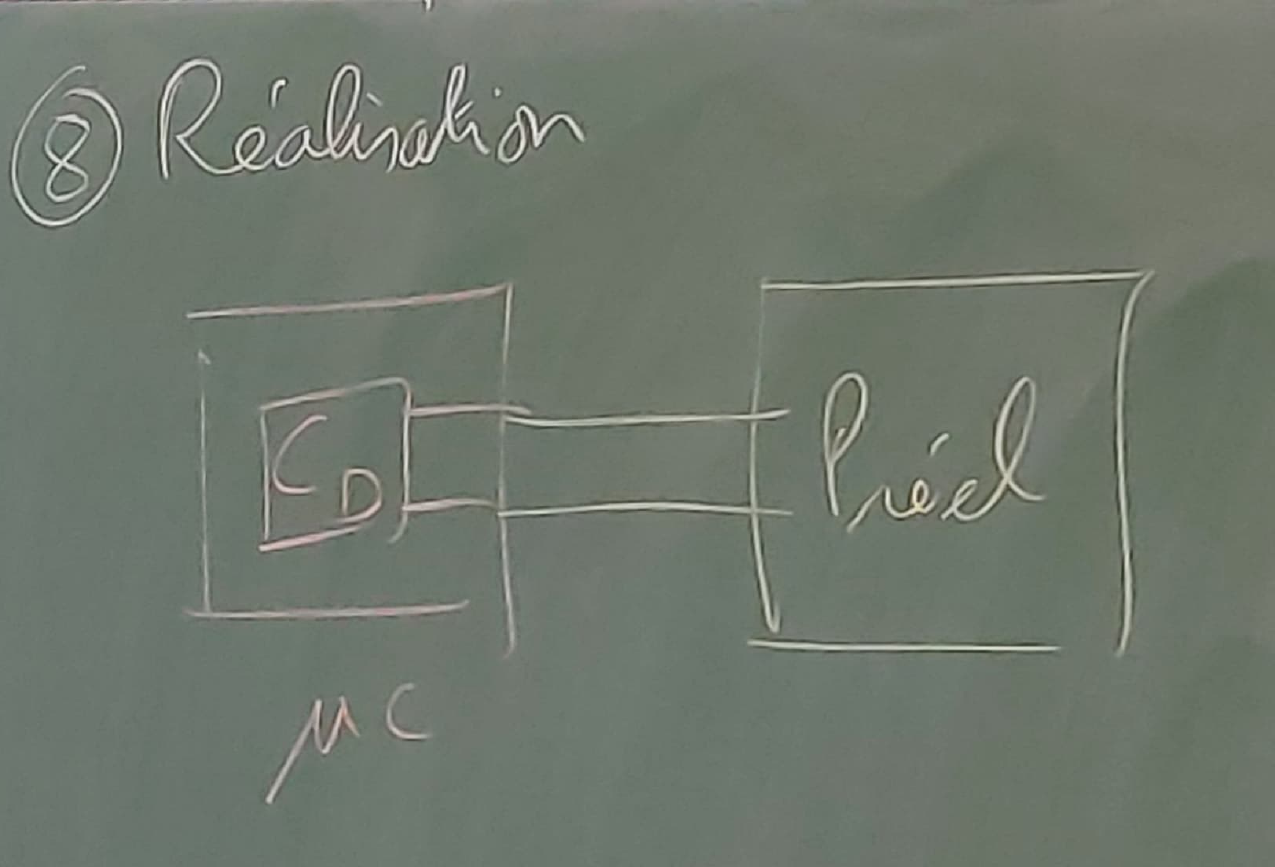 ⑧ Réalisation
CD
Préel
μC